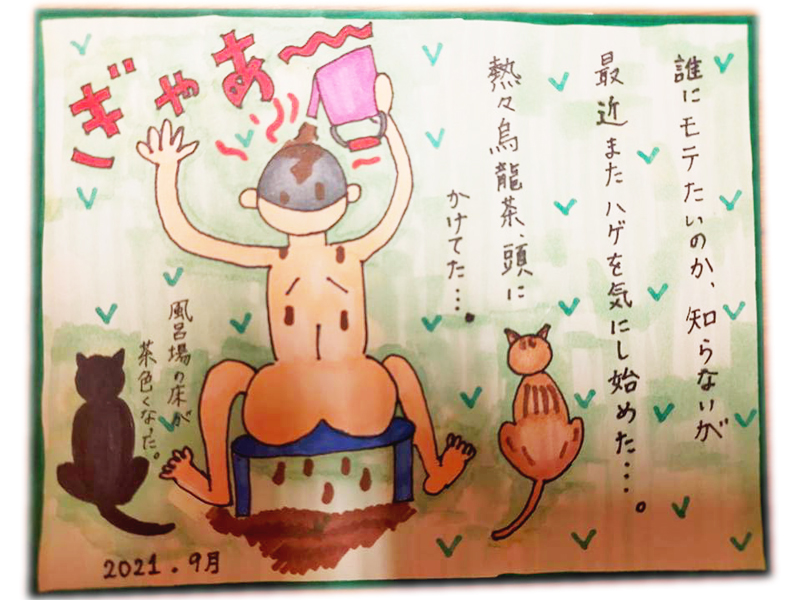 誰にモテたいのか、知らないが
最近またハゲを気にし始めた…。
熱々烏龍茶、頭に
かけてた…。
ぎゃあ〜
風呂場の床が
茶色くなった。
2021.9月